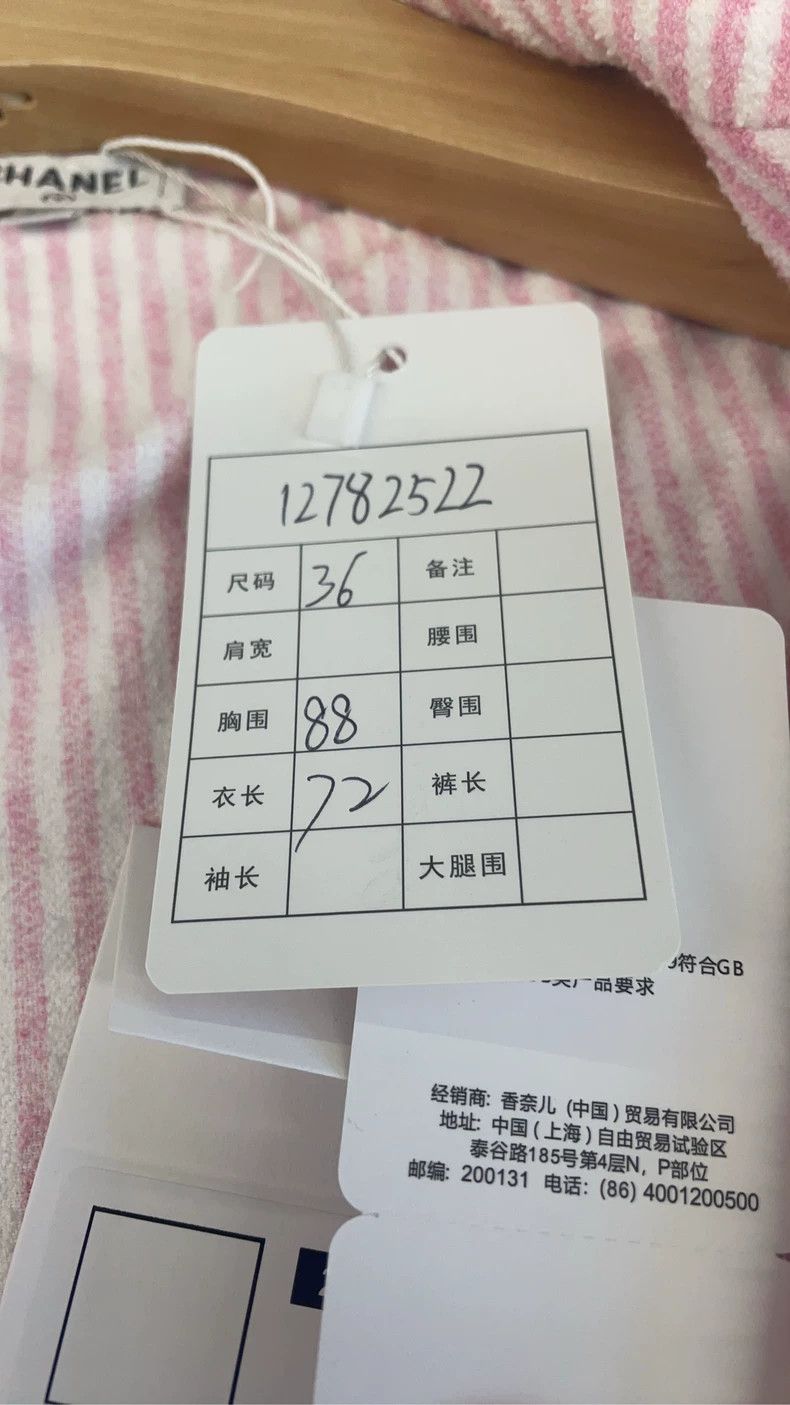 CHANEL
12782522
尺码 36 备注
肩宽 腰围
胸围 88 臀围
衣长 72 裤长
袖长 大腿围
符合GB
产品要求
经销商: 香奈儿 (中国) 贸易有限公司
地址: 中国 (上海) 自由贸易试验区
泰谷路185号第4层N, P部位
邮编: 200131 电话: (86) 4001200500